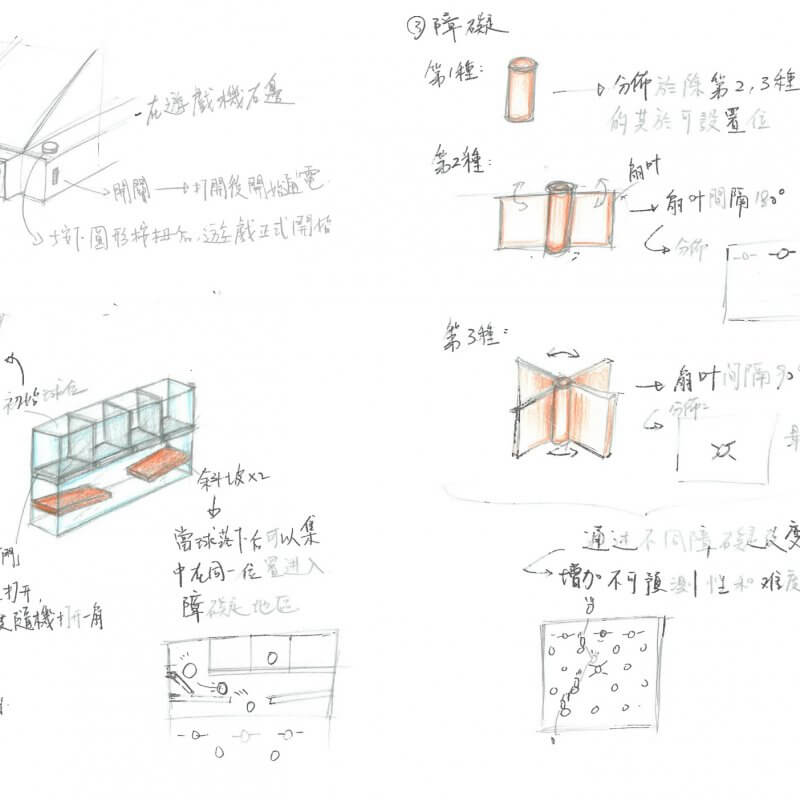 在遊戲機右邊
開關 → 打開後開始通電
按下圓形按扭後,遊戲正式開始
初始球位
斜坡×2
當球落下后可以集
中在同一位置進入
障礙地區
門
打開,
隨機打开一角
③障礙
第1種:
分佈於除第2,3種
的其於可設置位
第2種:
扇叶
扇叶間隔180°
分佈
第3種:
扇叶间隔90°
分佈:
通过不同障礙
增加不可預測性和难度